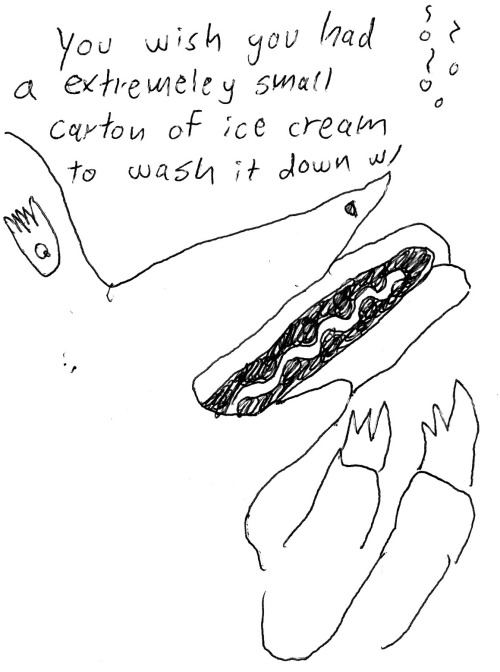 You wish you had
a extremeley small
carton of ice cream
to wash it down w/